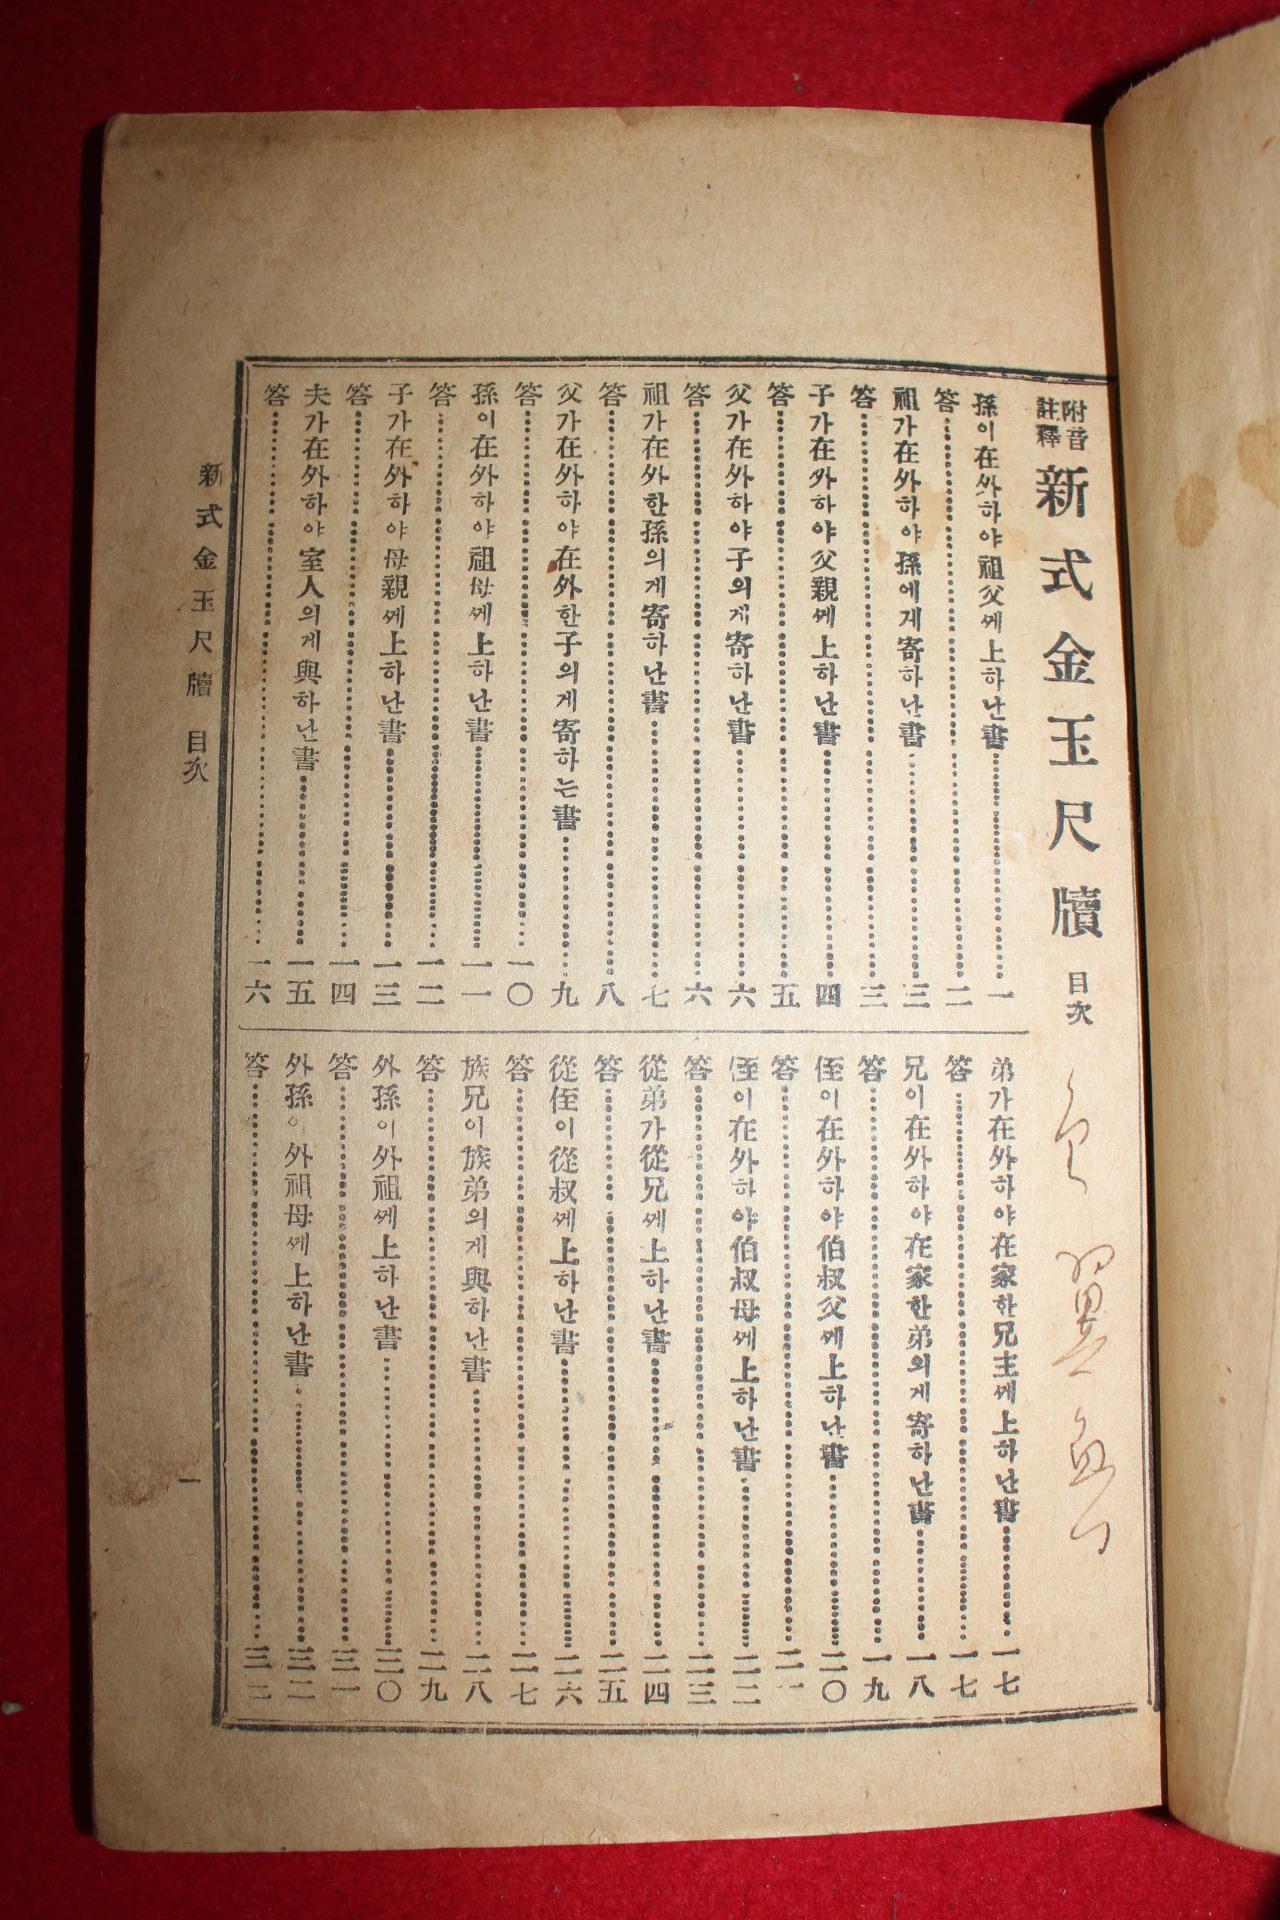 附音註釋 新式金玉尺牘 目次
孫이在外하야祖父ᄭᅦ上하난書 一
答 二
祖가在外하야孫에게寄하난書 三
答 三
子가在外하야父親ᄭᅦ上하난書 四
答 五
父가在外하야子의게寄하난書 六
答 六
祖가在外한孫의게寄하난書 七
答 八
父가在外하야在外한子의게寄하는書 九
答 一〇
孫이在外하야祖母ᄭᅦ上하난書 一一
答 一二
子가在外하야母親ᄭᅦ上하난書 一三
答 一四
夫가在外하야室人의게與하난書 一五
答 一六
弟가在外하야在家한兄主ᄭᅦ上하난書 一七
答 一七
兄이在外하야在家한弟의게寄하난書 一八
答 一九
侄이在外하야伯叔父ᄭᅦ上하난書 二〇
答 二一
侄이在外하야伯叔母ᄭᅦ上하난書 二二
答 二三
從弟가從兄ᄭᅦ上하난書 二四
答 二五
從侄이從叔ᄭᅦ上하난書 二六
答 二七
族兄이族弟의게與하난書 二八
答 二九
外孫이外祖ᄭᅦ上하난書 三〇
答 三一
外孫이外祖母ᄭᅦ上하난書 三二
答 三二
新式金玉尺牘 目次
一